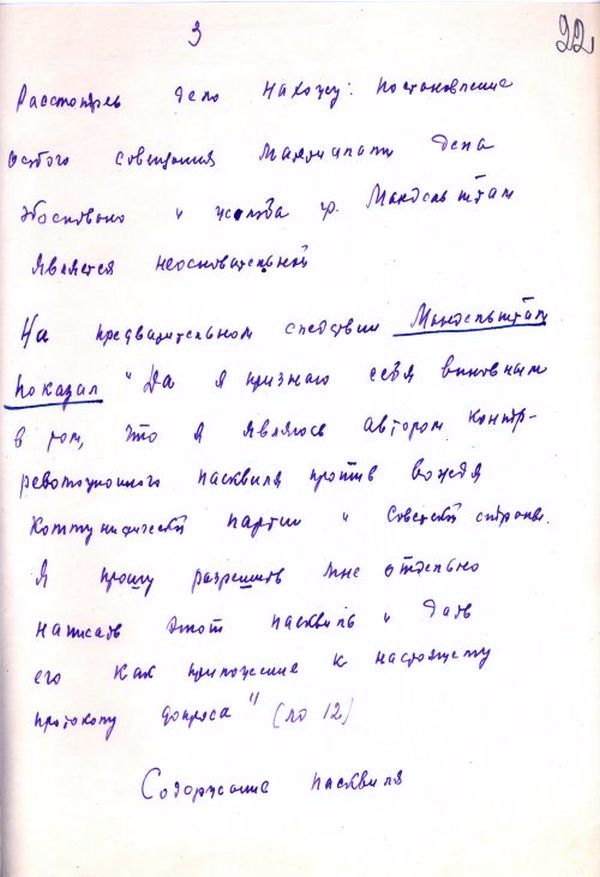 3
22
Рассмотрев дело нахожу: постановление
особого совещания материалами дела
обосновано и жалоба гр. Мандельштам
является неосновательной
На предварительном следствии Мандельштам
показал "Да я признаю себя виновным
в том, что я являюсь автором контр-
революционного пасквиля против вождя
коммунистической партии и Советской страны.
Я прошу разрешить мне отдельно
написать этот пасквиль и дать
его как приложение к настоящему
протоколу допроса" (лд 12)
Содержание пасквиля